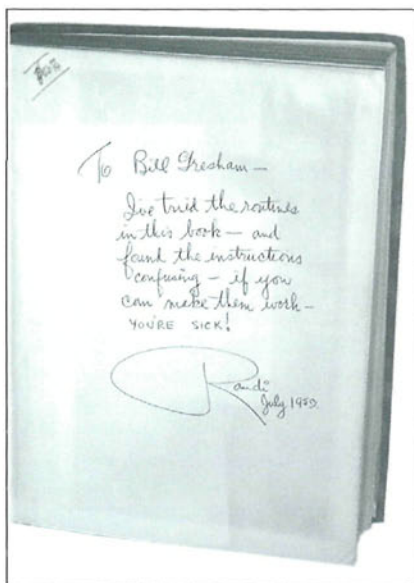 To Bill Gresham —
I've tried the routines
in this book — and
found the instructions
confusing — if you
can make them work —
YOU'RE SICK!
Randi
July 1959.